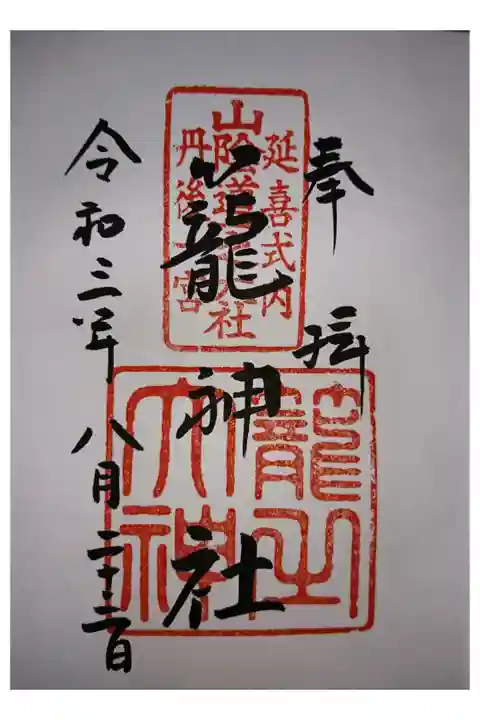 奉拝
延喜式内
山陰道一之大社
丹後一宮
籠神社
籠之大神
令和三年八月二十三日